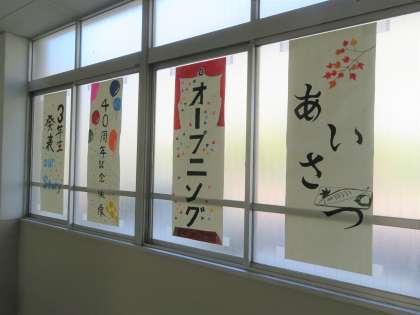 3年生
発表
our
Story
40周年記念映像
オープニング
あいさつ